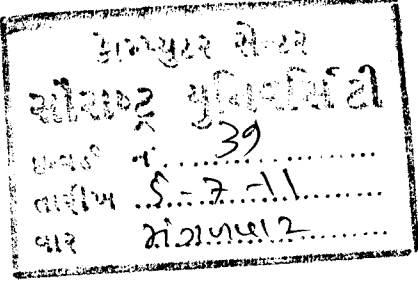 કોમ્પ્યુટર સેન્ટર
સૌરાષ્ટ્ર યુનિવર્સિટી
નં. 39
તારીખ 5-7-11
વાર મંગળવાર